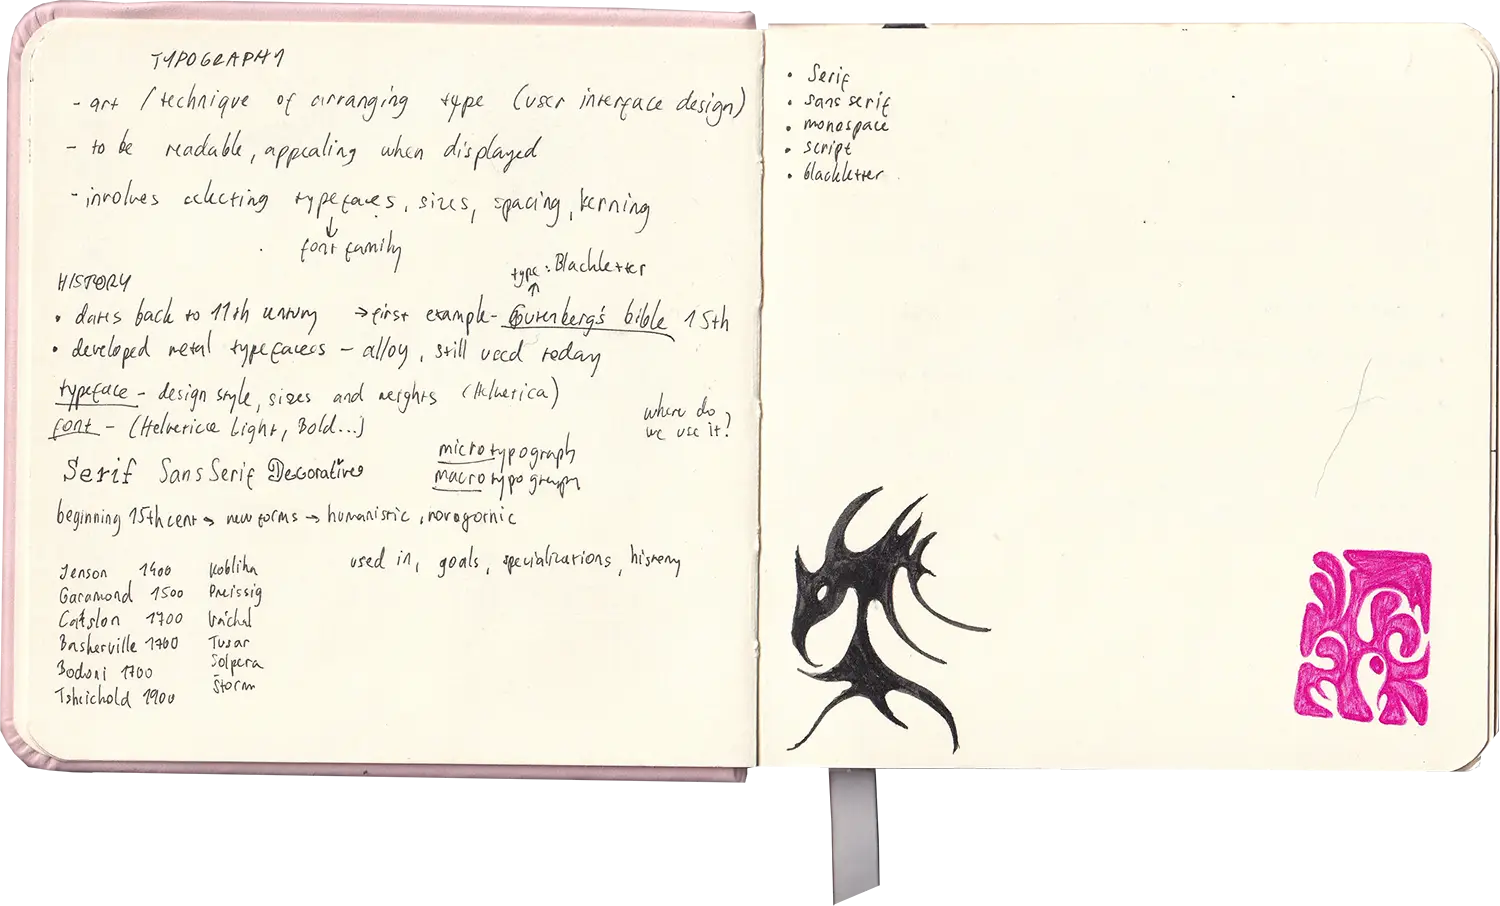 TYPOGRAPHY
- art / technique of arranging type (user interface design)
- to be readable, appealing when displayed
- involves selecting typefaces, sizes, spacing, kerning
↓
font family
type: Blackletter
↑
HISTORY
• dates back to 11th century → first example - Gutenberg's bible 15th
• developed metal typefaces - alloy, still used today
typeface - design style, sizes and weights (Helvetica)
font - (Helvetica Light, Bold...)
where do
we use it?
Serif Sans Serif Decorative
microtypograph
macrotypograph
beginning 15th cent → new forms → humanistic, novogothic
used in, goals, specializations, history
Jenson 1400
Garamond 1500
Catslon 1700
Baskerville 1700
Bodoni 1700
Tsheichold 1900
Kobliha
Preissig
Váchal
Tusar
Solpera
Štorm
• Serif
• sans serif
• monospace
• script
• blackletter